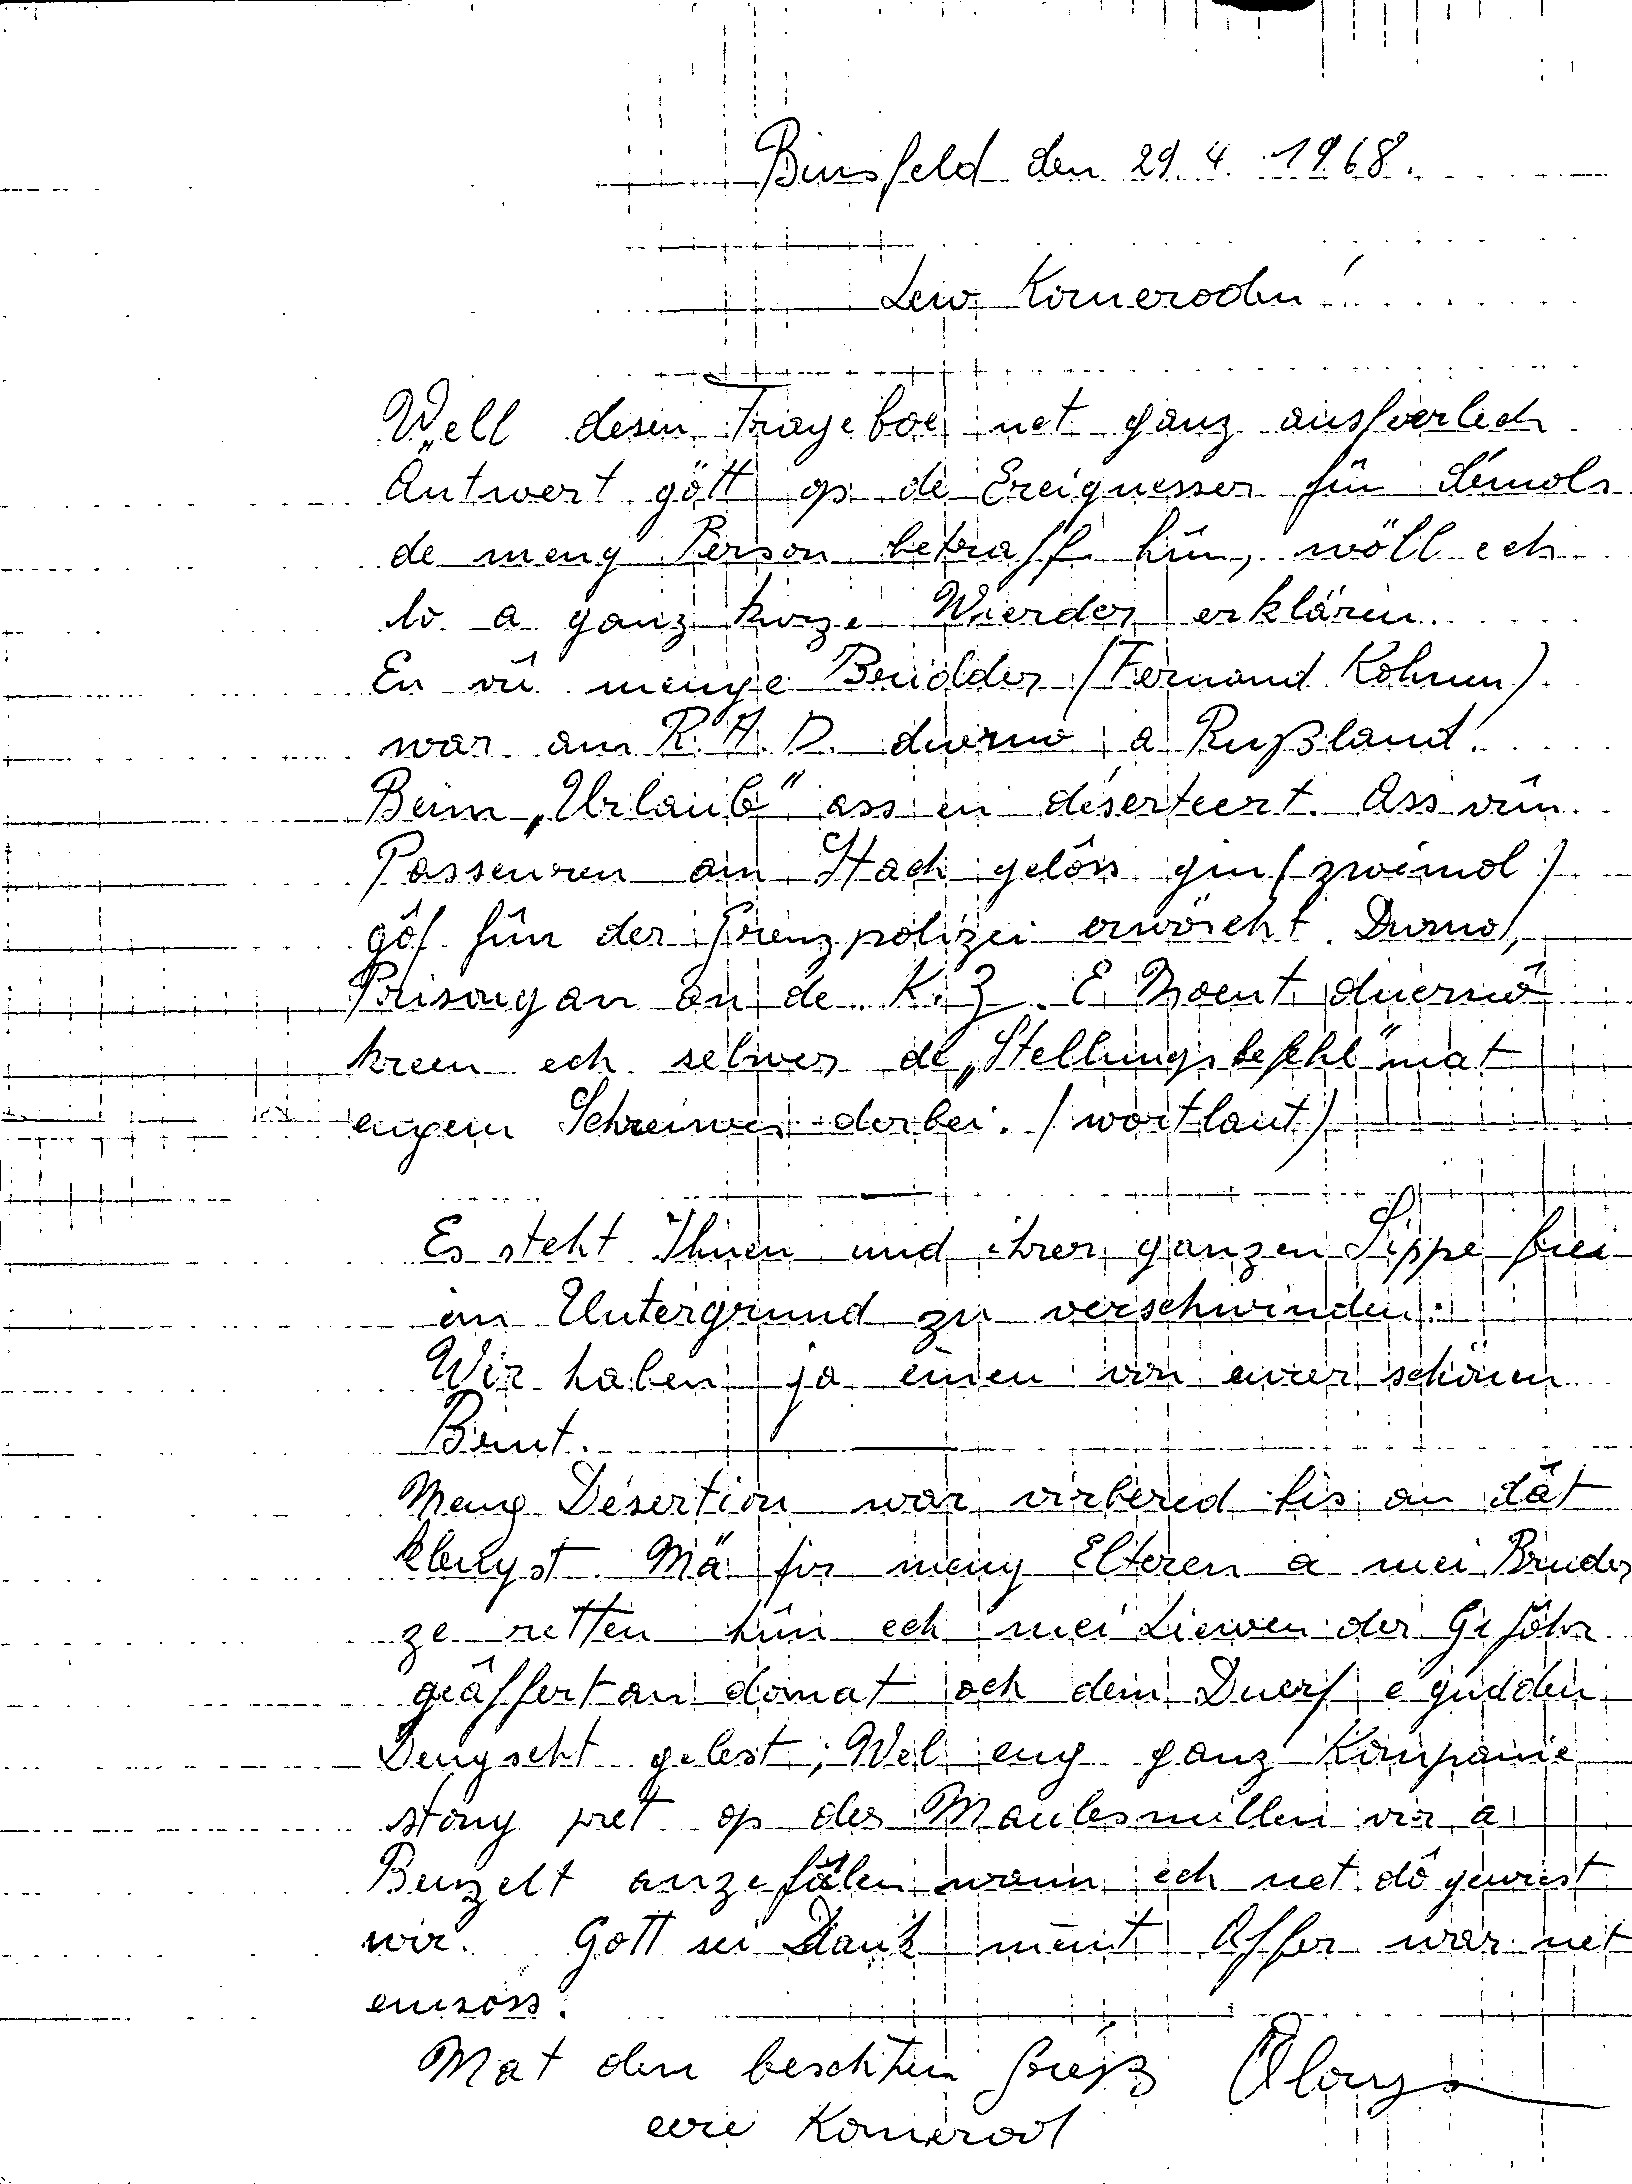 Binsfeld den 29.4.1968.
Lew Komeroden!
Well desen Frageboe net ganz ausfverlech
Äntwert gött op de Ereignesser fün démols
de meng Person betraff hün, wöll ech
lo a ganz kurze Wierder erklären.
En vü menge Bridder (Fernand Kohnen)
war am R.A.D. duerno a Rußland.
Beim „Urlaub" ass en déserteert. Ass vün
Passeuren am Stach gelôss gin (zweimol)
gôf fün der Grenzpolizei erwöscht. Durno,
Prisongan an de K.Z. E Moent duernô
kreen ech selwer de „Stellungsbefehl" mat
engem Schreiwes derbei. (wortlaut)
Es steht Ihnen und ihrer ganzen Sippe frei
im Untergrund zu verschwinden:
Wir haben ja einen von eurer schönen
Brut.
Meng Désertion war virbered bis an dät
klengst. Mä fir meng Elteren a mei Bruder
ze retten hün ech mei Liewen der Geföhr
geäffert an domat och dem Duerf e gudden
Dengscht gelest; Wel eng ganz Kompanie
stong pret op der Maulesmillen vir a
Benzelt anzefälen wann ech net dô gewiest
wir. Gott sei Dank meint Affer war net
emsoss.
Mat den beschten Greiß Aloys
eire Komerod